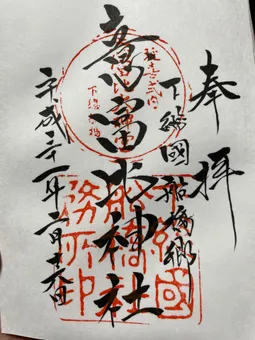 奉拝
下総國船橋郷
意富比神社
平成三十一年二月十六日
延喜式内
下総船橋